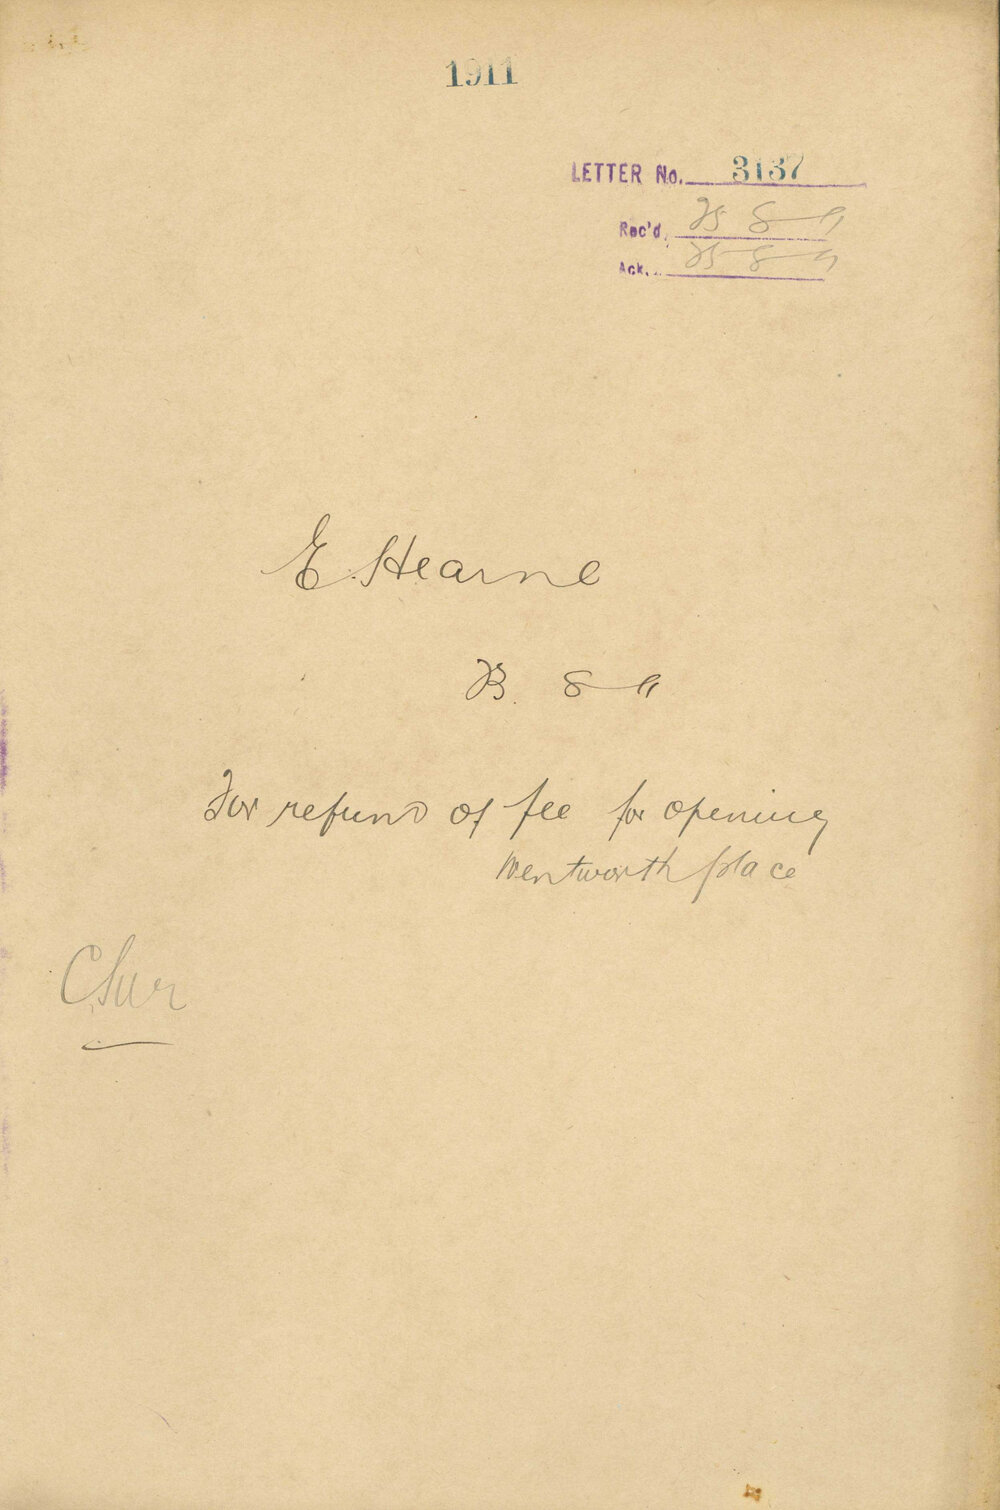 1911
LETTER No. 3137
Rec'd. 25 8 11
Ack. 25 8 11
E. Hearne
8 11
For refund of fee for opening
Wentworth place
C, Sur